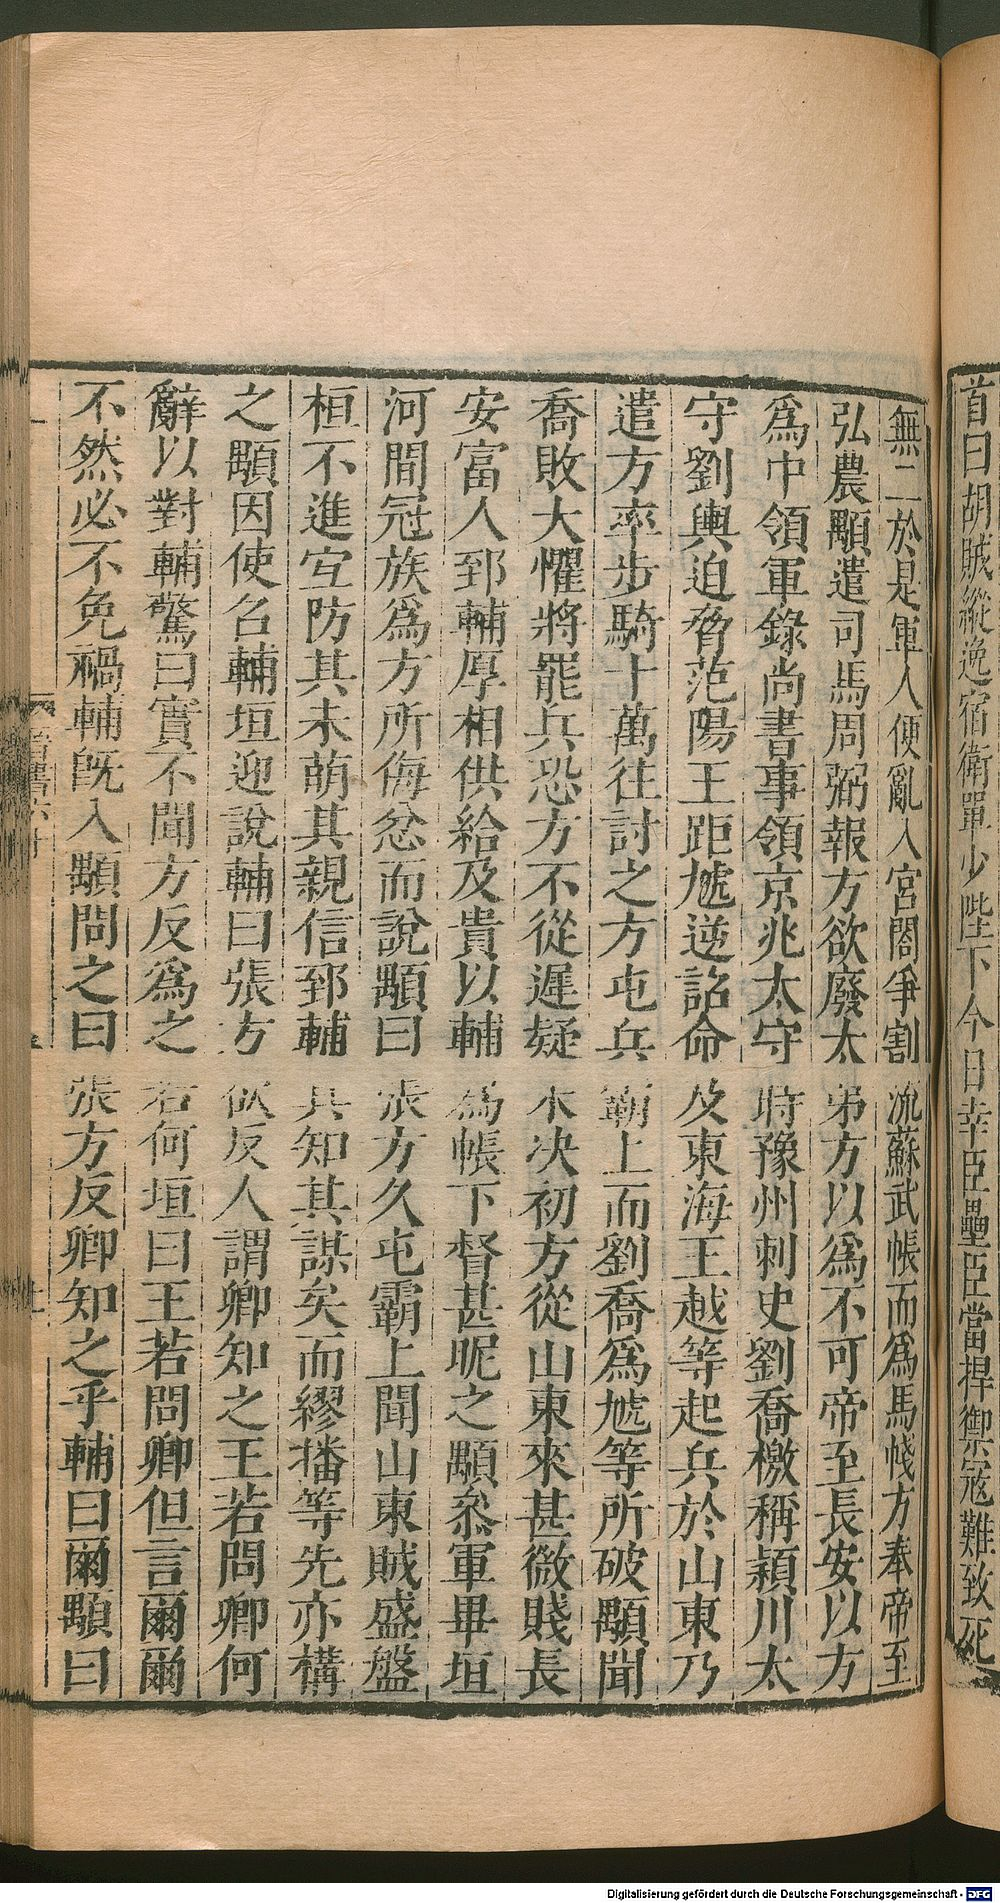 首曰胡賊縱逸宿衛單少陛下今日幸臣壘臣當捍禦寇難致死
無二於是軍人便亂入宮閤爭割流蘇武帳而爲馬帴方奉帝至
弘農顒遣司馬周弼報方欲廢太弟方以爲不可帝至長安以方
爲中領軍錄尚書事領京兆太守時豫州刺史劉喬檄稱潁川太
守劉輿迫脅范陽王距虓逆詔命及東海王越等起兵於山東乃
遣方率步騎十萬往討之方屯兵霸上而劉喬爲虓等所破顒聞
喬敗大懼將罷兵恐方不從遲疑未決初方從山東來甚微賤長
安富人郅輔厚相供給及貴以輔爲帳下督甚昵之顒叅軍畢垣
河間冠族爲方所侮忿而說顒曰張方久屯霸上聞山東賊盛盤
桓不進宜防其未萌其親信郅輔具知其謀矣而繆播等先亦構
之顒因使召輔垣迎說輔曰張方欲反人謂卿知之王若問卿何
辭以對輔驚曰實不聞方反爲之若何垣曰王若問卿但言爾爾
不然必不免禍輔旣入顒問之曰張方反卿知之乎輔曰爾顒曰
Digitalisierung gefördert durch die Deutsche Forschungsgemeinschaft - DFG